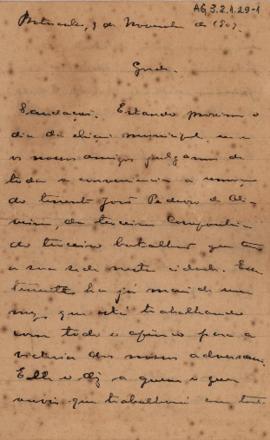 AG 3.2.1.29-1
de Novembro de 1907.
Saudações. Estando proximo o
dia da eleição municipal, eu e
os nossos amigos julgamos de
toda a conveniencia a remoção
do tenente José Pedroso de Oli-
veira, da terceira Companhia
do terceiro batalhão que tem
a sua séde nesta cidade. Esse
tenente ha já mais de um
mez que está trabalhando
com todo o afinco para a
victoria dos nossos adversarios.
Elle o diz a quem o quer
ouvir que trabalhará com todo